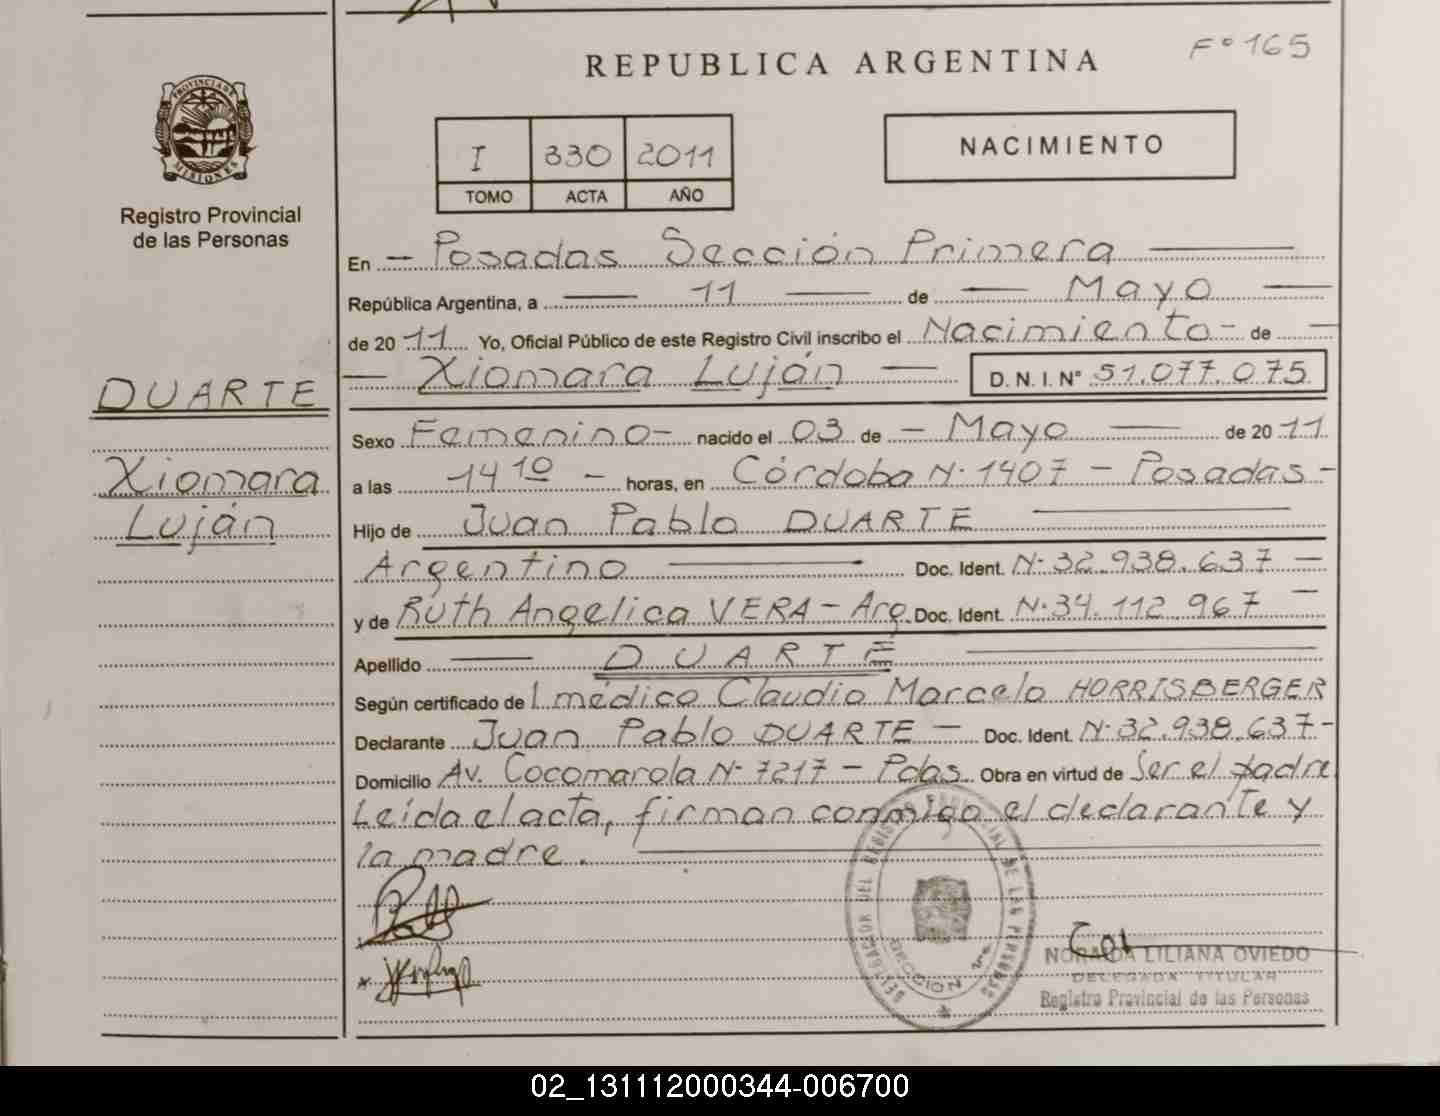 F° 165
REPUBLICA ARGENTINA
PROVINCIA DE
MISIONES
Registro Provincial
de las Personas
I 330 2011
TOMO ACTA AÑO
NACIMIENTO
DUARTE
Xiomara
Luján
En - Posadas Sección Primera
República Argentina, a 11 de Mayo
de 20 11 Yo, Oficial Público de este Registro Civil inscribo el Nacimiento - de
Xiomara Luján D.N.I. N° 51.077.075
Sexo Femenino - nacido el 03 de - Mayo de 20 11
a las 14 10 - horas, en Córdoba N. 1407 - Posadas -
Hijo de Juan Pablo DUARTE
Argentino Doc. Ident. N. 32.938.637 -
y de Ruth Angelica VERA - Arg. Doc. Ident. N. 34.112.967 -
Apellido DUARTE
Según certificado de l médico Claudio Marcelo HORRISBERGER
Declarante Juan Pablo DUARTE - Doc. Ident. N. 32.938.637 -
Domicilio Av. Cocomarola N. 7217 - Pdas. Obra en virtud de Ser el padre
Leída el acta, firman conmigo el declarante y
la madre.
DEL REGISTRO PROVINCIAL DE LAS PERSONAS
SECCION 1ra.
NORALDA LILIANA OVIEDO
DELEGADA TITULAR
Registro Provincial de las Personas
02_131112000344-006700